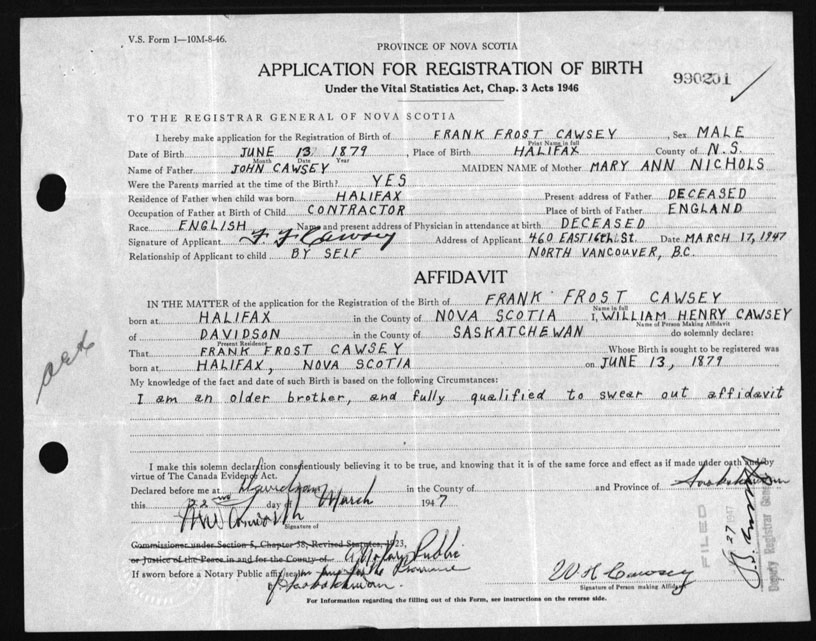 V.S. Form 1—10M-8-46.
PROVINCE OF NOVA SCOTIA
APPLICATION FOR REGISTRATION OF BIRTH
990201
Under the Vital Statistics Act, Chap. 3 Acts 1946
TO THE REGISTRAR GENERAL OF NOVA SCOTIA
I hereby make application for the Registration of Birth of FRANK FROST CAWSEY, Sex MALE
Print Name in full
Date of Birth JUNE 13 1879, Place of Birth HALIFAX County of N.S.
Month Date Year
Name of Father JOHN CAWSEY MAIDEN NAME of Mother MARY ANN NICHOLS
Were the Parents married at the time of the Birth? YES
Residence of Father when child was born HALIFAX Present address of Father DECEASED
Occupation of Father at Birth of Child CONTRACTOR Place of birth of Father ENGLAND
Race ENGLISH Name and present address of Physician in attendance at birth DECEASED
Signature of Applicant F F Cawsey Address of Applicant 460 EAST 16th St. Date MARCH 17, 1947
Relationship of Applicant to child BY SELF NORTH VANCOUVER, B.C.
AFFIDAVIT
IN THE MATTER of the application for the Registration of the Birth of FRANK FROST CAWSEY
Name in full
born at HALIFAX in the County of NOVA SCOTIA I, WILLIAM HENRY CAWSEY
Name of Person Making Affidavit
of DAVIDSON in the County of SASKATCHEWAN do solemnly declare:
Present Residence
That FRANK FROST CAWSEY Whose Birth is sought to be registered was
born at HALIFAX, NOVA SCOTIA on JUNE 13, 1879
My knowledge of the fact and date of such Birth is based on the following Circumstances:
I am an older brother, and fully qualified to swear out affidavit
I make this solemn declaration conscientiously believing it to be true, and knowing that it is of the same force and effect as if made under oath and by
virtue of The Canada Evidence Act.
Declared before me at Davidson in the County of and Province of Saskatchewan
this 22nd day of March 1947
Signature of
Commissioner under Section 5, Chapter 38, Revised Statutes, 1923,
or Justice of the Peace in and for the County of A Notary Public
If sworn before a Notary Public affix seal in and for the Province
of Saskatchewan.
W H Cawsey
Signature of Person making Affidavit
FILED
27 1947
Deputy Registrar General
For Information regarding the filling out of this Form, see instructions on the reverse side.